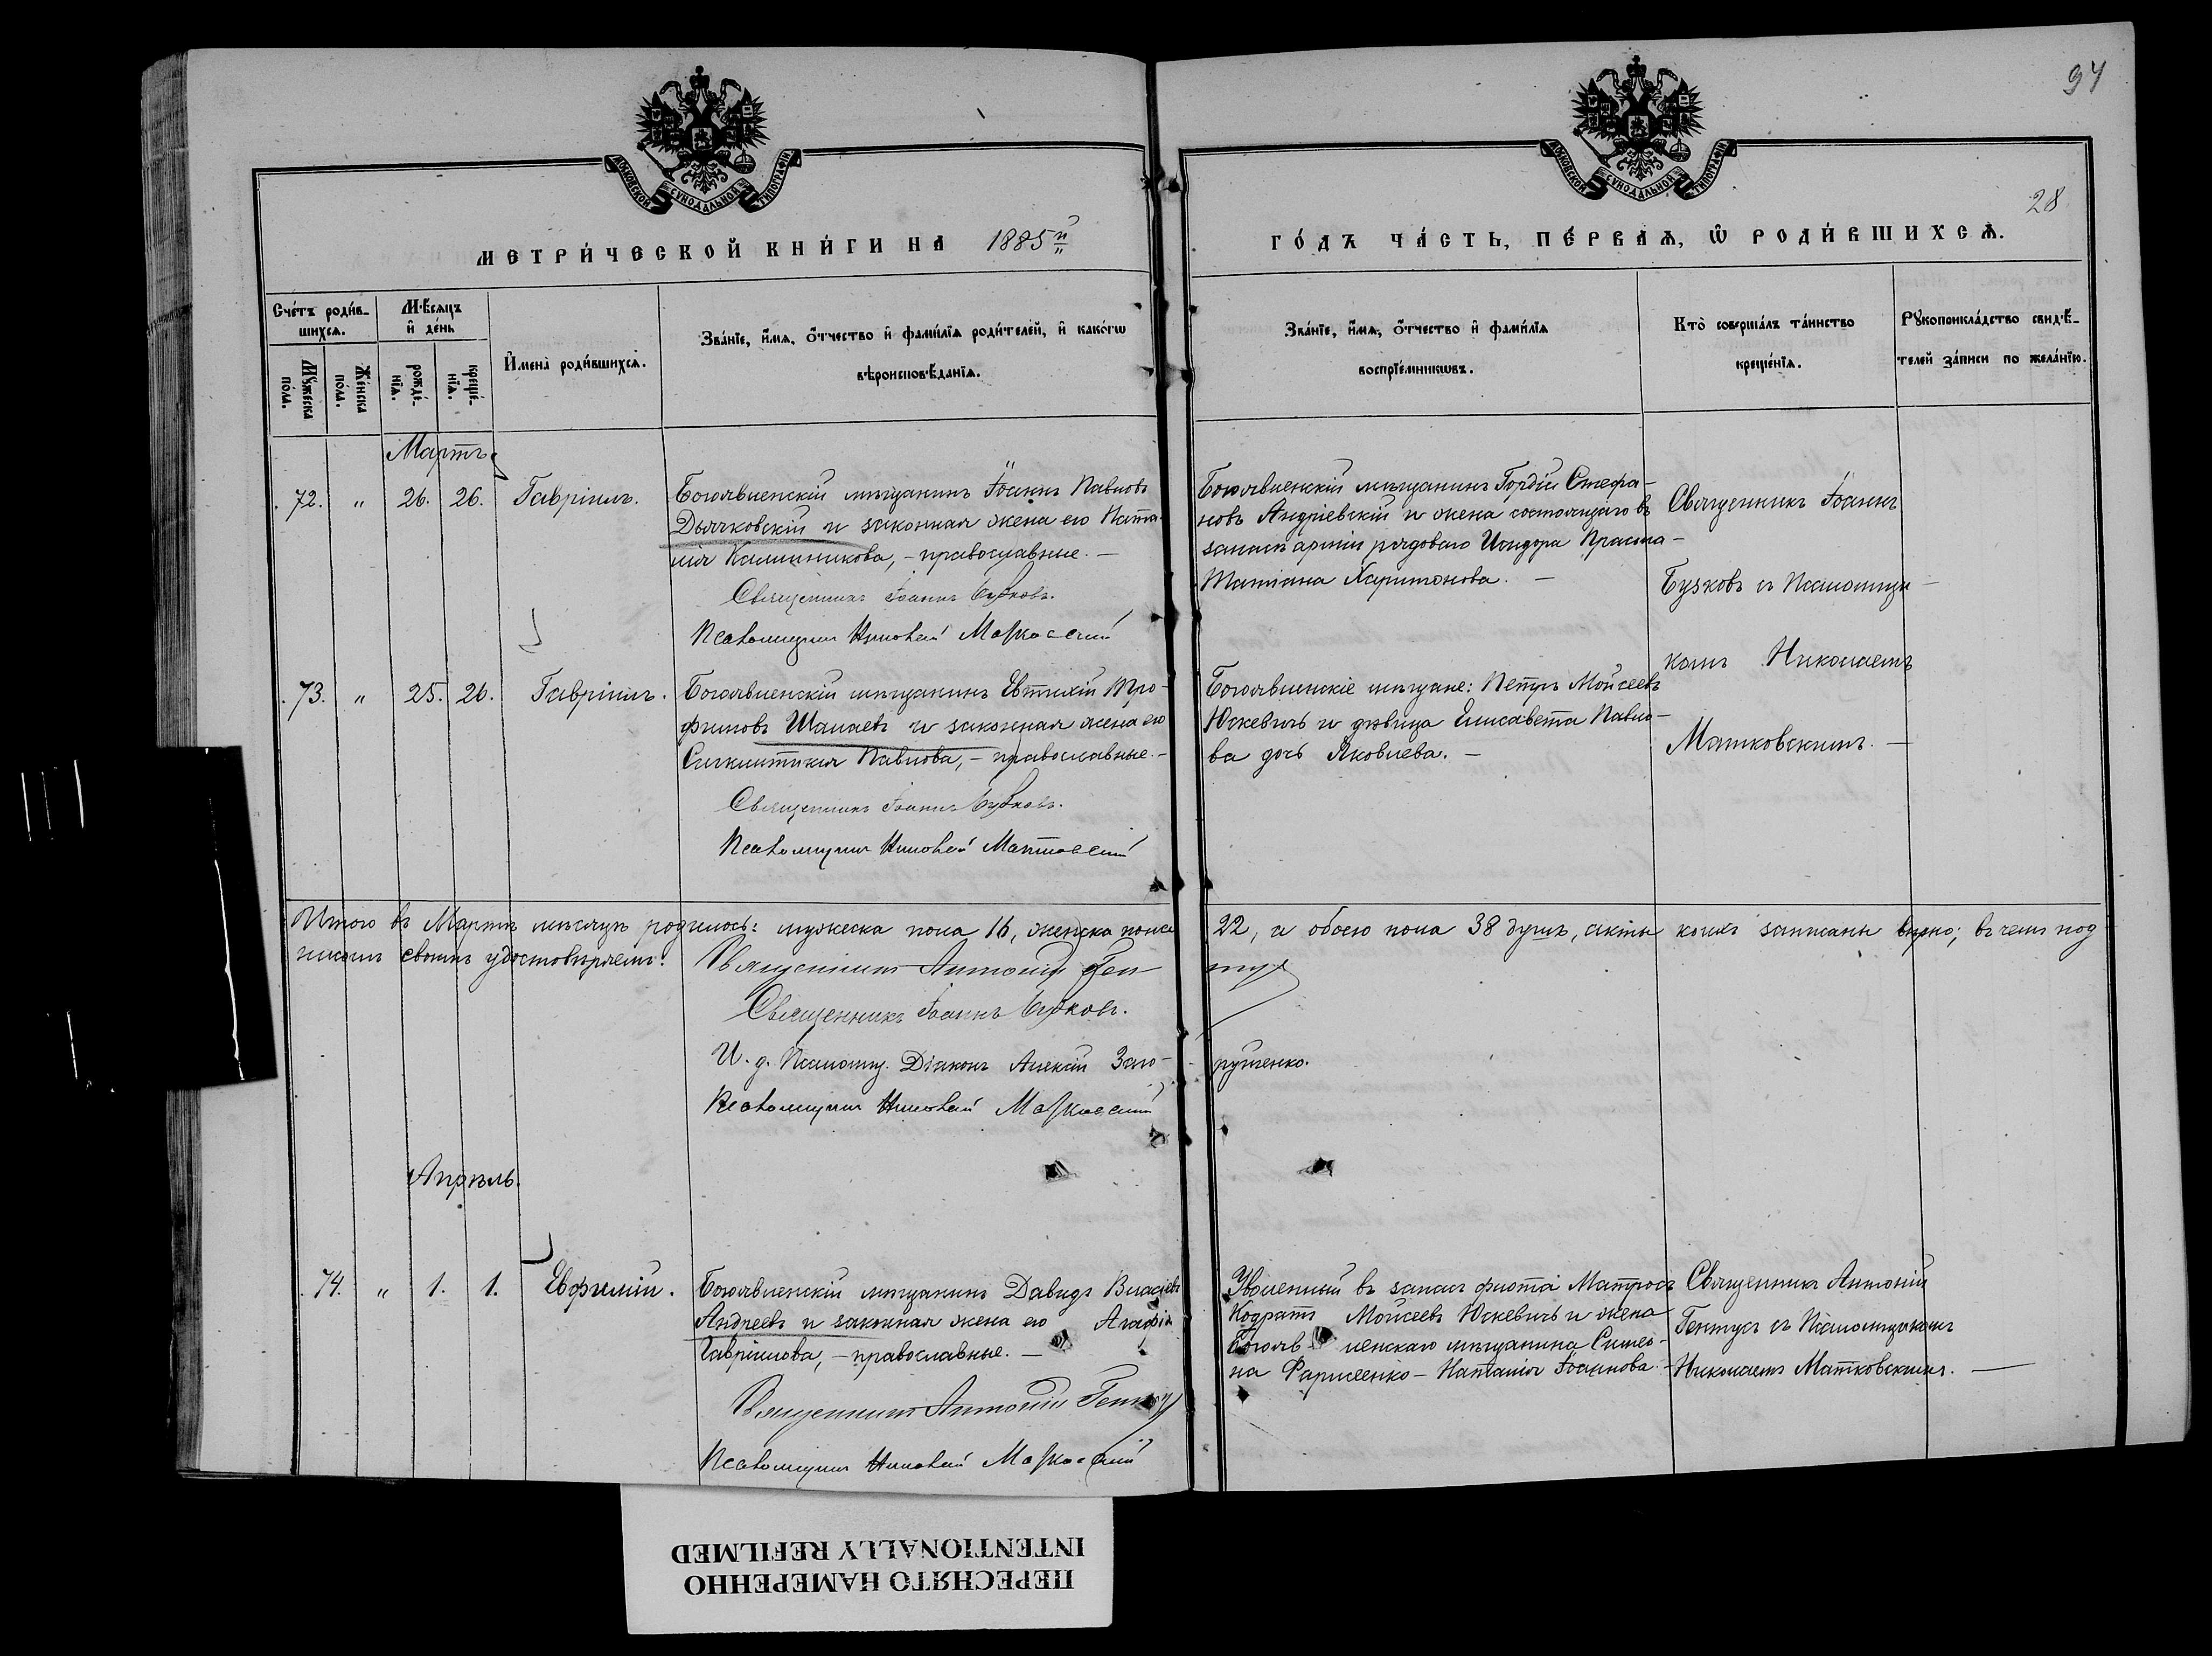 94
28
МОСКОВСКОЙ СѴНОДАЛЬНОЙ ТИПОГРАФІИ
МОСКОВСКОЙ СѴНОДАЛЬНОЙ ТИПОГРАФІИ
МЕТРИ́ЧЕСКОЙ КНИ́ГИ НА 1885й
ГО́ДЪ ЧА́СТЬ, ПЕ́РВАѦ, Ѿ РОДИ́ВШИХСѦ.
Сче́тъ роди́в-
шихсѧ.
Мꙋ́жеска по́ла.
Же́нска по́ла.
М́ѣсѧцъ
и҆ де́нь
рожде́-нїѧ.
креще́-нїѧ.
И҆мена̀ роди́вшихсѧ.
Зва́нїе, и҆́мѧ, ѻ҆́тчество и҆ фами́лїѧ роди́телей, и҆ како́гѡ
вѣроисповѣ́данїѧ.
Зва́нїе, и҆́мѧ, ѻ҆́тчество и҆ фами́лїѧ
воспрїе́мникѡвъ.
Кто̀ соверша́лъ та́инство
креще́нїѧ.
Рꙋкоприкла́дство свидѣ́-
телей за́писи по жела́нїю.
Мартъ
72. " 26. 26. Гавріилъ.
Богоявленскій мѣщанинъ Іоаннъ Павловъ
Дьячковскій и законная жена его Ната-
лія Калинникова, - православные. -
Священникъ Іоаннъ Бузковъ.
Псаломщикъ Николай Матковскій
Богоявленскій мѣщанинъ Гордій Стефа-
новъ Андріевскій и жена состоящаго въ
запасѣ арміи рядоваго Исидора
Татіана Харитонова. -
Священникъ Іоаннъ
Бузковъ съ Псаломщи-
комъ Николаемъ
Матковскимъ. -
73. " 25. 26. Гавріилъ.
Богоявленскій мѣщанинъ Евтихій Тро-
фимовъ Шалаевъ и законная жена его
Синклитикія Павлова, - православные. -
Священникъ Іоаннъ Бузковъ.
Псаломщикъ Николай Матковскій
Богоявленскіе мѣщане: Петръ Мойсеевъ
Юскевичъ и дѣвица Елисавета Павло-
ва дочь Яковлева. -
Итого въ Мартѣ мѣсяцѣ родилось: мужеска пола 16, женска пола 22, а обоего пола 38 душъ, акты коихъ записаны вѣрно; въ чемъ под-
писомъ своимъ удостовѣряемъ:
Священникъ Антоній Ген-тусъ
Священникъ Іоаннъ Бузковъ.
И. д. Псаломщ. Діаконъ Алексій Заго-рущенко.
Псаломщикъ Николай Матковскій
Апрѣль.
74. " 1. 1. Евфимій.
Богоявленскій мѣщанинъ Давидъ Власіевъ
Андреевъ и законная жена его Агафія
Гавріилова, - православные. -
Священникъ Антоній Гентусъ
Псаломщикъ Николай Матковскій
Уволенный въ запасъ флота Матросъ
Кодратъ Мойсеевъ Юскевичъ и жена
Богоявленскаго мѣщанина Симео-
на Фарисеенко - Наталія Іоаннова. -
Священникъ Антоній
Гентусъ съ Псаломщикомъ
Николаемъ Матковскимъ. -
ПЕРЕСНЯТО НАМЕРЕННО
INTENTIONALLY REFILMED